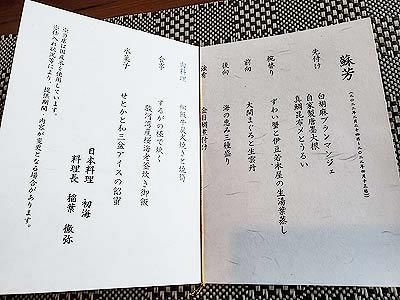 蘇芳
先付け
白胡麻ブランマンジェ
自家製唐墨大根
真鯛昆布〆とうるい
椀替り
ずわい蟹と伊豆若木屋の生湯葉蒸し
前向
大間まぐろと生雲丹
後向
海の恵み三種盛り
強肴
金目鯛煮付け
肉料理
食事
するがの極で炊く
駿河湾産桜海老釜炊き御飯
水菓子
せとかと和三盆アイスの餡蜜
日本料理 初海
料理長 稲葉 徹弥
※当店は国産米を使用しています。
※仕入れ状況等により、提供期間・内容が変更となる場合があります。